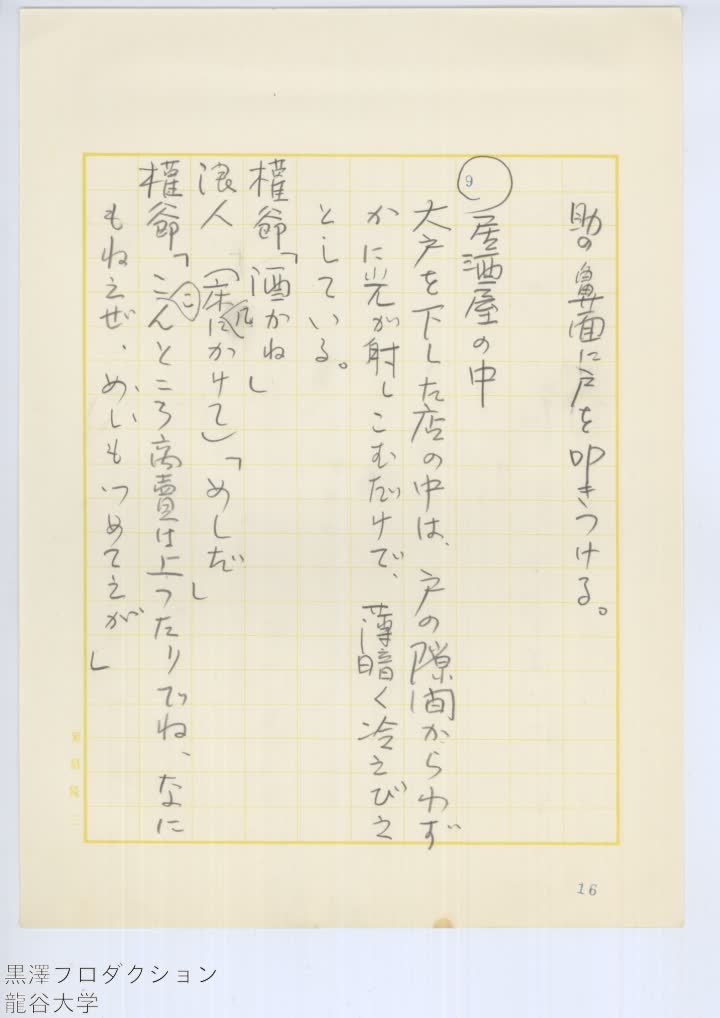 助の鼻面に戸を叩きつける。
9
居酒屋の中
大戸を下した店の中は、戸の隙間からわず
かに光が射しこむだけで、薄暗く冷えびえ
としている。
権爺「酒かね」
浪人（床几にかけて）「めしだ」
権爺「こゝんところ商賣は上つたりでね、なに
もねえぜ、めしもつめてえが」
16
黒澤プロダクション
龍谷大学